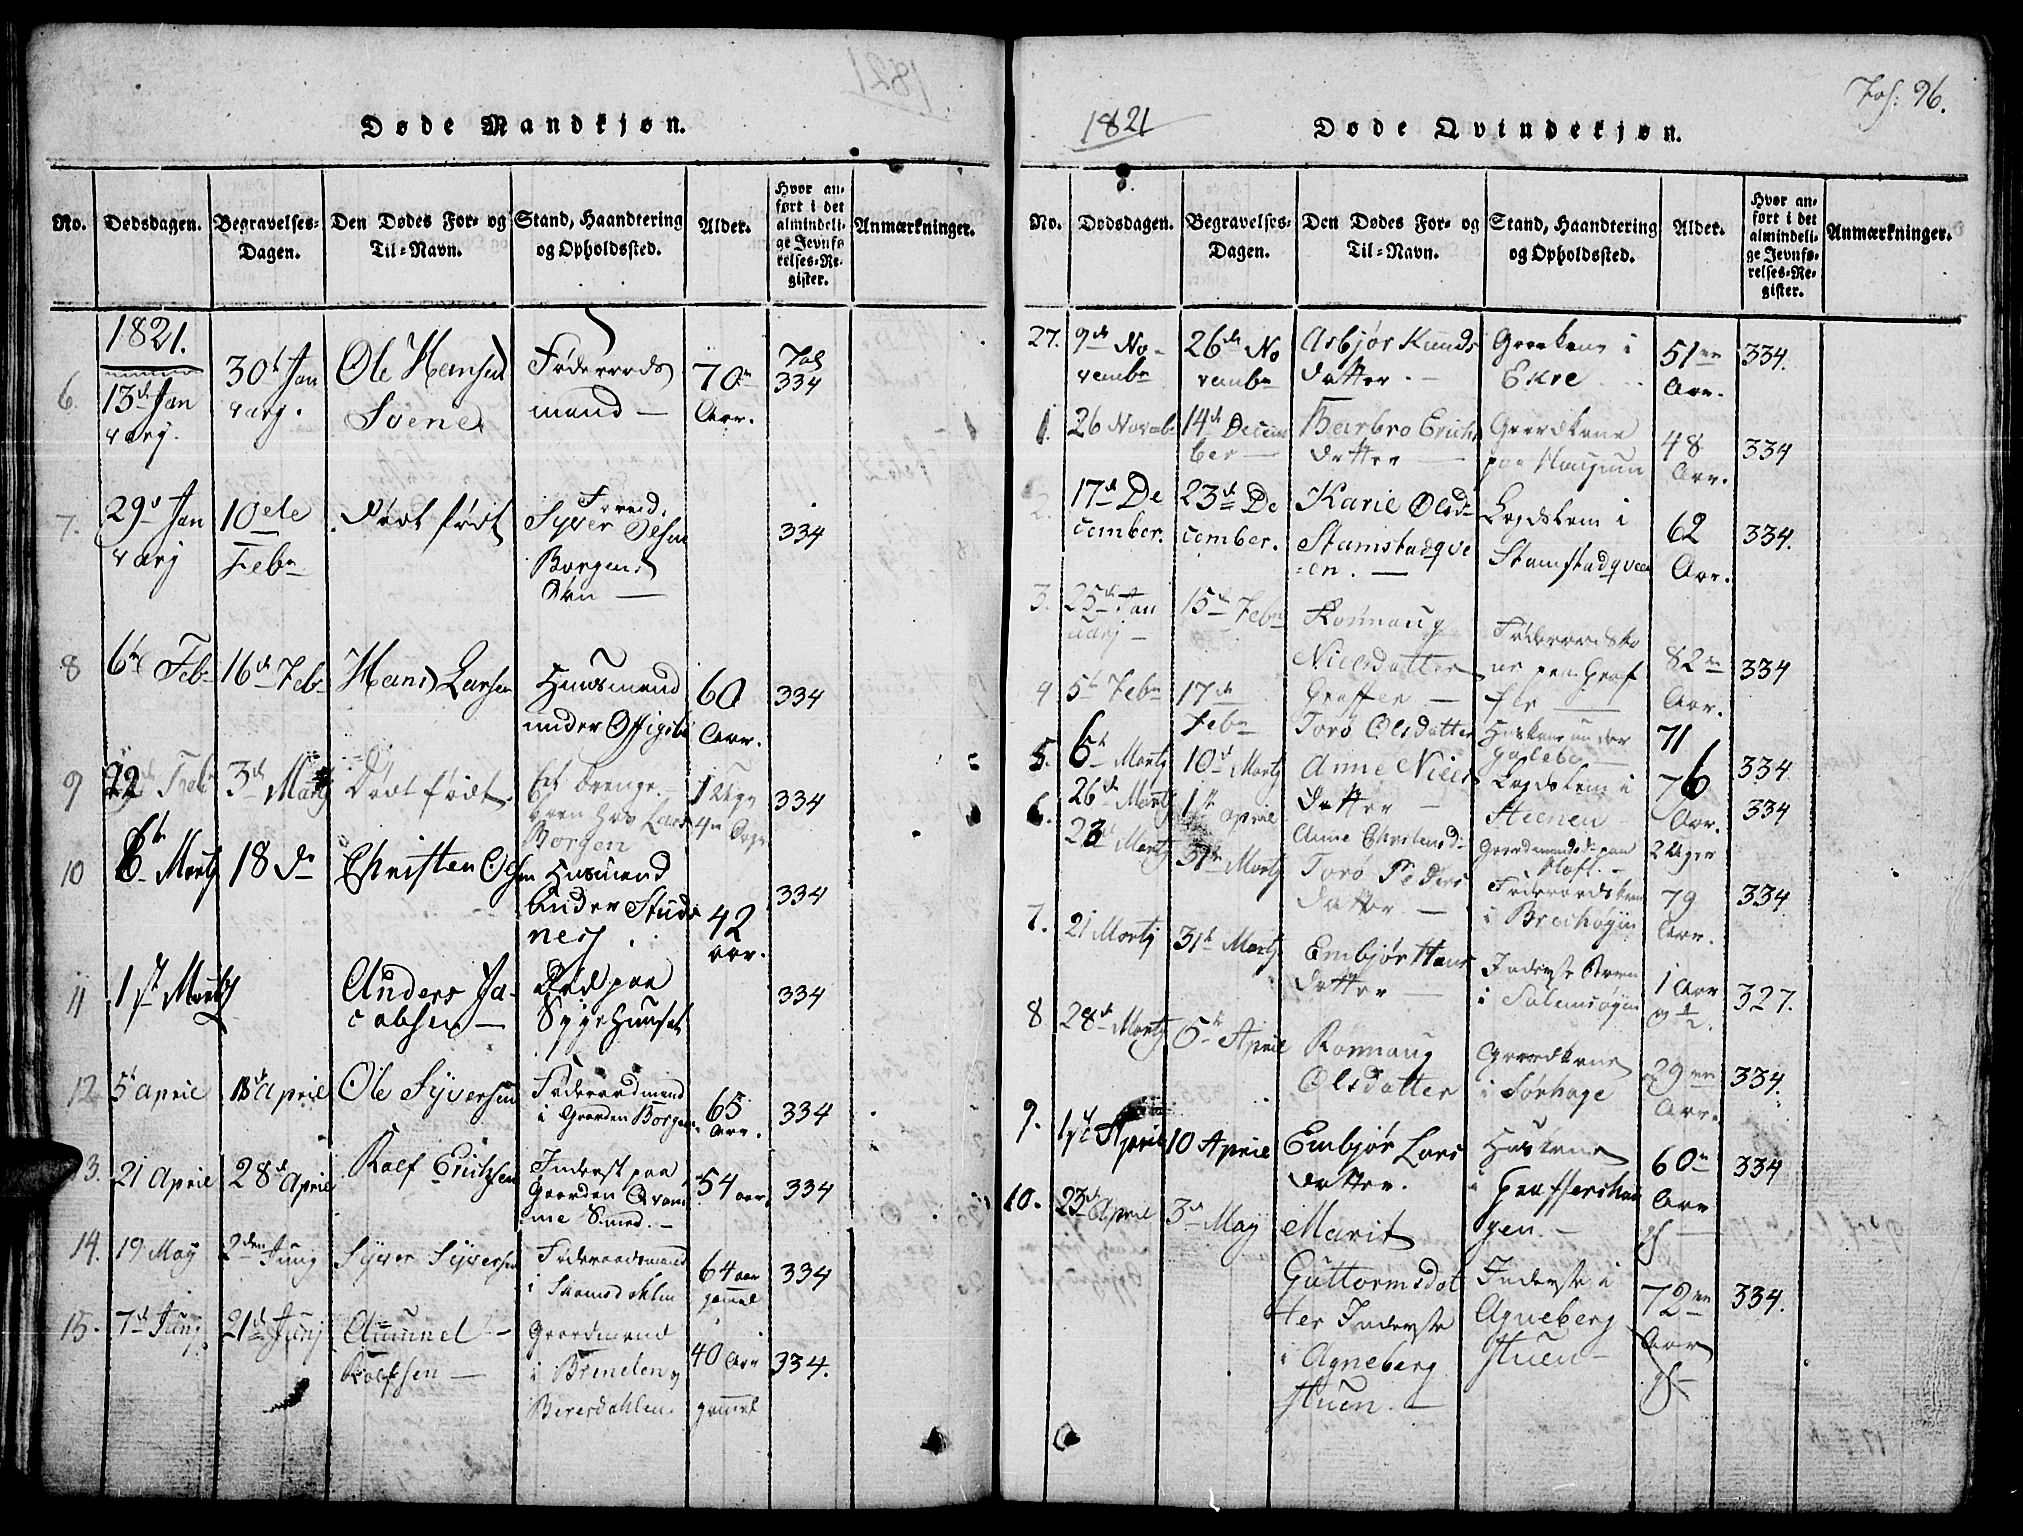 1821
Døde Mandkjøn.
No.
Dødsdagen.
Begravelses-
Dagen.
Den Dødes For- og
Til-Navn.
Stand, Haandtering
og Opholdssted.
Alder.
Hvor an-
ført i det
almindeli-
ge Jevnfø-
relses-Re-
gister.
Anmærkninger.
1821.
6. 13d Jan
varj.
30t Jan
varj.
Ole Hansen
Svene
Føderaads
mand —
70
Aar.
Fol
334
7. 29d Jan
varj
10de
Febr
Dødt født
Syver Olsen
Borgens
334
8 6te Feb
16d Feb
Hans Larsen
Huusmand
under
60
Aar.
334
9 22 Feb
3d Martj
Dødt født.
Et Drenge-
barn hos Lars
Borgen
334
10 6t Martj
18 d
Christen Olsen
Huusmand
under Studs
nes
42
aar.
334
11 1st Martj
Anders Ja-
cobsen —
Død paa
Sygehuuset
334
12. 5t April
13d April
Ole Syversen
Føderaadmand
i Gaarden Borgen
65
Aar.
334
13. 21 April
28d April
Rolf Erichsen
Inderst paa
Gaarden Qvam
me Smed. —
54 aar
334
14. 19 May
2den Junj
Syver Syversen
Føderaadsmand
i
64 aar
gammel
334
15. 7d Junj
21d Junj
Ammel —
Rolfsen —
Gaardmand
i
40 Aar
gammel
334.
Fol: 96.
1821
Døde Qvindekjøn.
No.
Dødsdagen.
Begravelses-
Dagen.
Den Dødes For- og
Til-Navn.
Stand, Haandtering
og Opholdssted.
Alder.
Hvor an-
ført i det
almindeli-
ge Jevnfø-
relses-Re-
gister.
Anmærkninger.
27. 9de No-
vembr
26de No
vembr
Asbjør Knuds
datter. —
i
Ekre
51
Aar.
334.
1. 26 Novemb
14d Decem
ber —
Barbro Erichs
datter —
Gaardkone
paa Haugum
48
Aar.
334
2. 17d De
cember.
23d De
cember.
Karie Olsd-
Stamstadqve
=en. —
Lægdslem i
Stamstadqveen
62
Aar.
334.
3. 25d Jan
uarj —
15d Febr
Rønnaug
Nielsdatter
Graffer —
Føderaadsko
ne paa Graf
fer —
82
Aar.
334
4 5te Febr
17de
Febr
Torø Olsdatter
Huskone under
71
5. 6t Martj
10d Martj
Anne Niels
datter —
Lægdslem i
Steenen
76
Aar.
334
6. 26d Martj
1st April
334
23d Martj
31te Martj
Anne Christensd-
Gaardmandsd- paa
Kloft. —
2 Uger
Torø Peders
datter. —
Føderaadskone
i Breihøyin
79
Aar.
334
7. 21 Martj
31t Martj
Embjør Hans
datter —
Inderste Barn
i
1 Aar
og 1/2.
327.
8 28d Martj
5te April
Rønnaug
Olsdatter
Gaardkone
i Sørhage
29
Aar.
334.
9. 1st April
10 April
Embjør Lars
datter.
Huskone
i Grafferhau
gen. —
60
Aar
334
10. 23d April
3d May
Marit
Guttormsdat
ter Inderste
i Agneberg
stuen. —
Inderste i
Agneberg
stuen —
72
Aar
334.